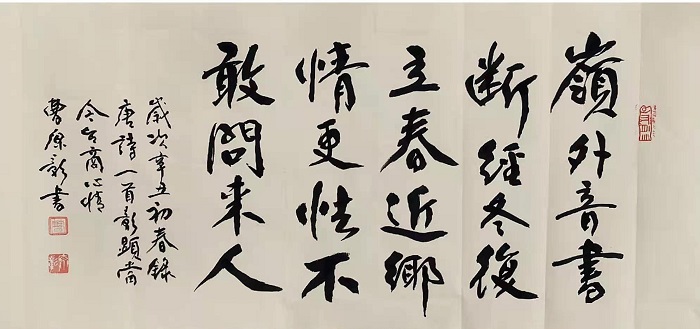 嶺外音書
断經冬復
立春近鄉
情更怯不
敢問来人
歲次辛丑初春錄
唐詩一首彰顯當
今台商心情
曹原彰書